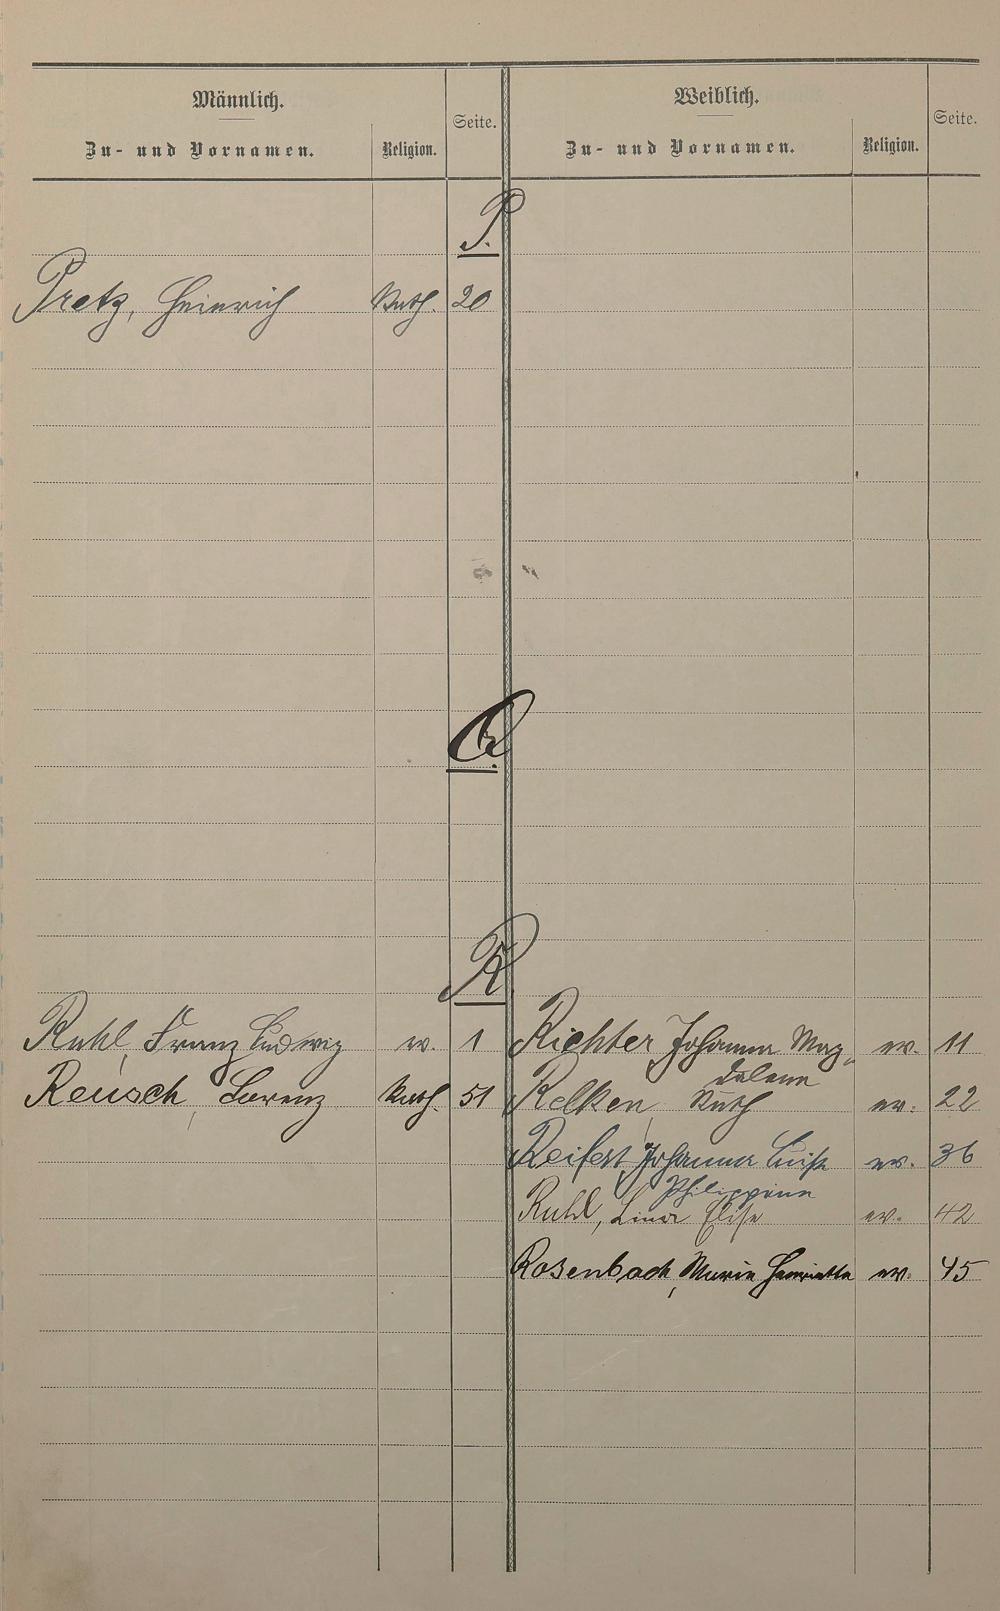 Männlich.
Zu- und Vornamen.
Religion.
Seite.
Weiblich.
Zu- und Vornamen.
Religion.
Seite.
P.
Pretz, Heinrich Kath. 20
Q.
R.
Ruhl, Franz Ludwig ev. 1
Reusch, Lorenz Kath. 51
Richter, Johanna Mag- ev. 11
dalena
Relken, Ruth ev. 22
Reifert, Johanna Luise ev. 36
Philippine
Ruhl, Lina Elise ev. 42
Rosenbach, Maria Henriette ev. 45